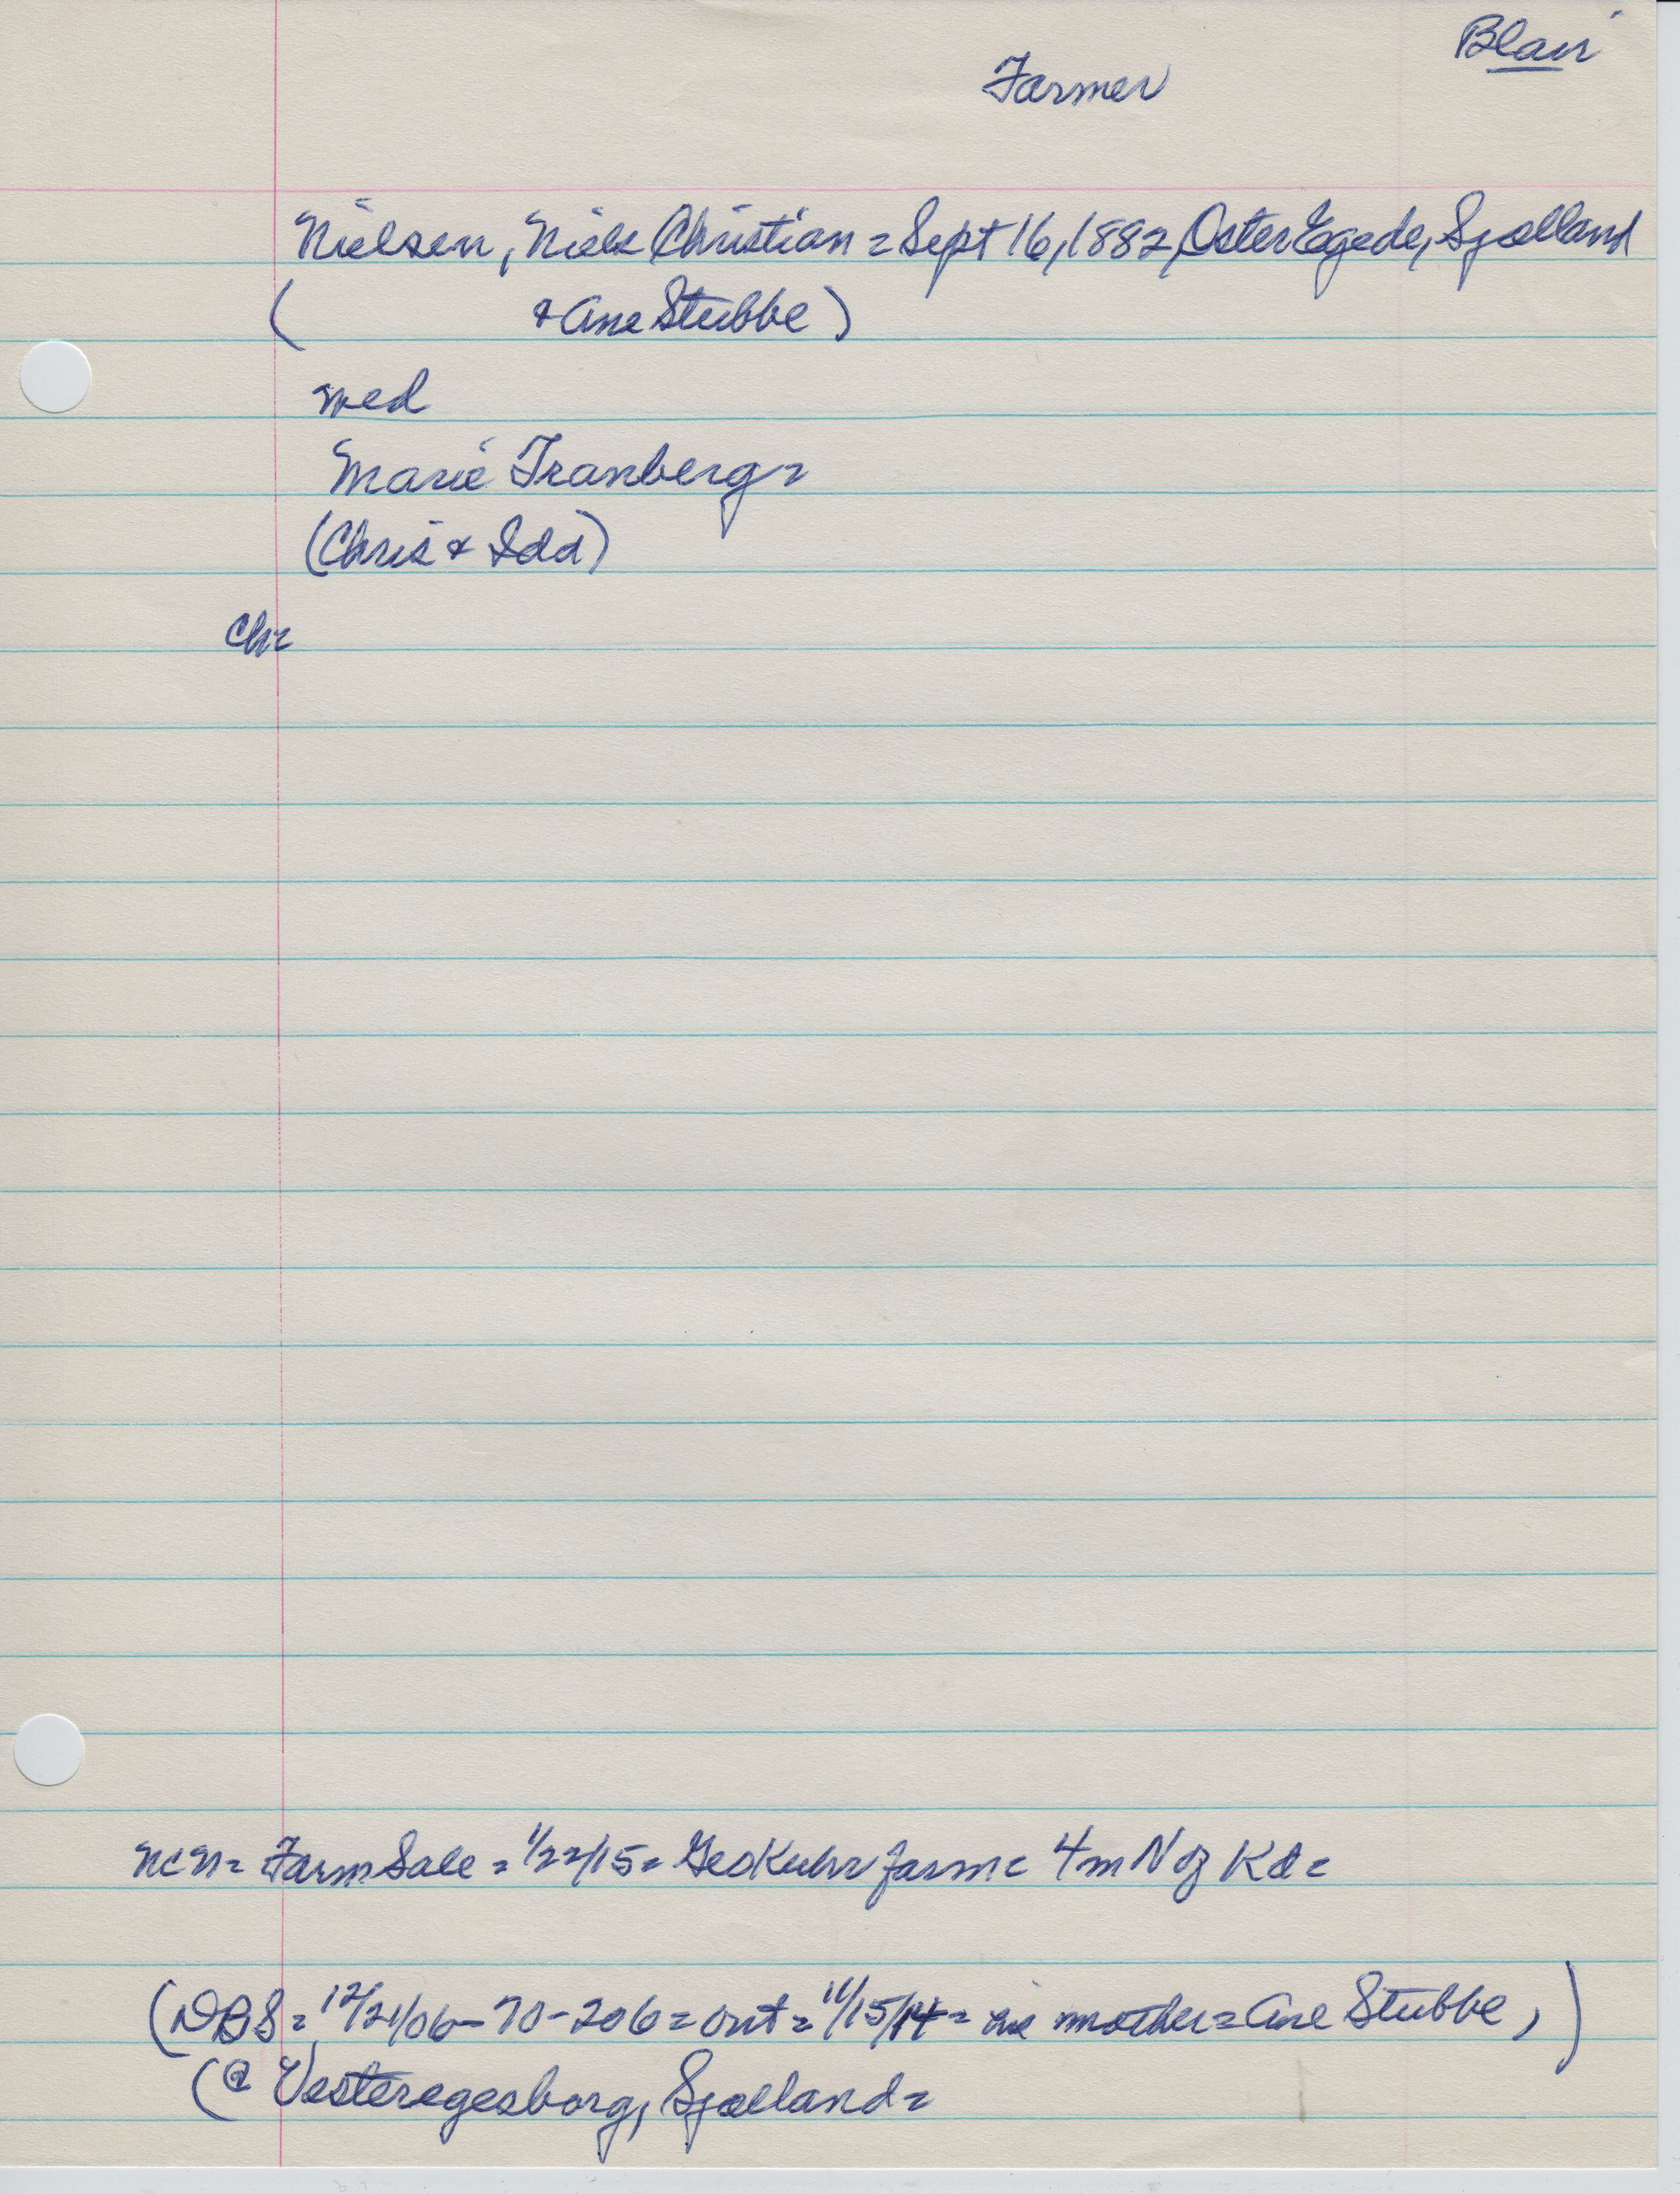 Blair
Farmer
Nielsen, Niels Christian = Sept 16, 1882, Oster Egede, Sjælland
( & Ane Stubbe)
med
Marie Tranberg =
(Chris & Ida)
Ch =
NCN = Farm Sale = 1/22/15 = Geo Kuhr farm = 4 m N of Kd =
(DBS = 12/21/06 - 70 - 206 = out = 11/15/14 = mother = Ane Stubbe, )
(@ Vesteregesborg, Sjælland =